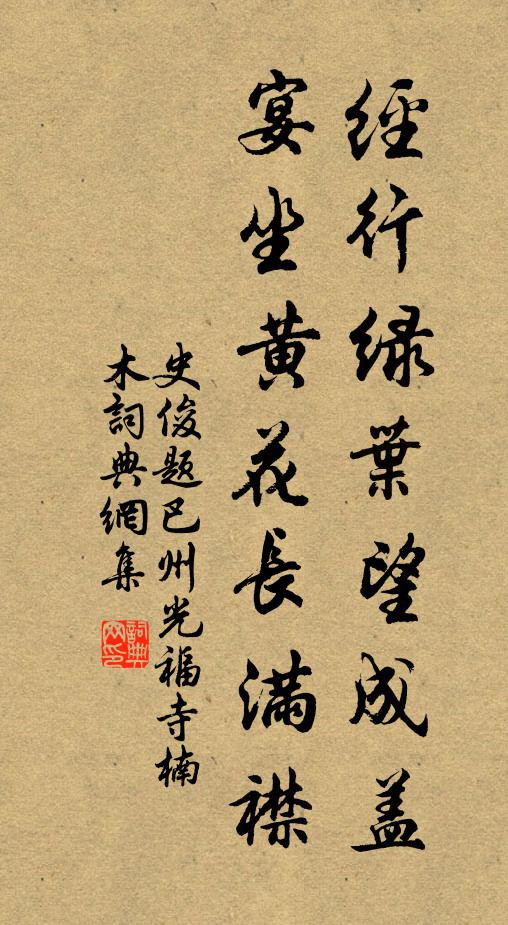 經行綠葉望成蓋
宴坐黃花長滿襟
史俊題巴州光福寺楠
木詞典網集
詞典網印